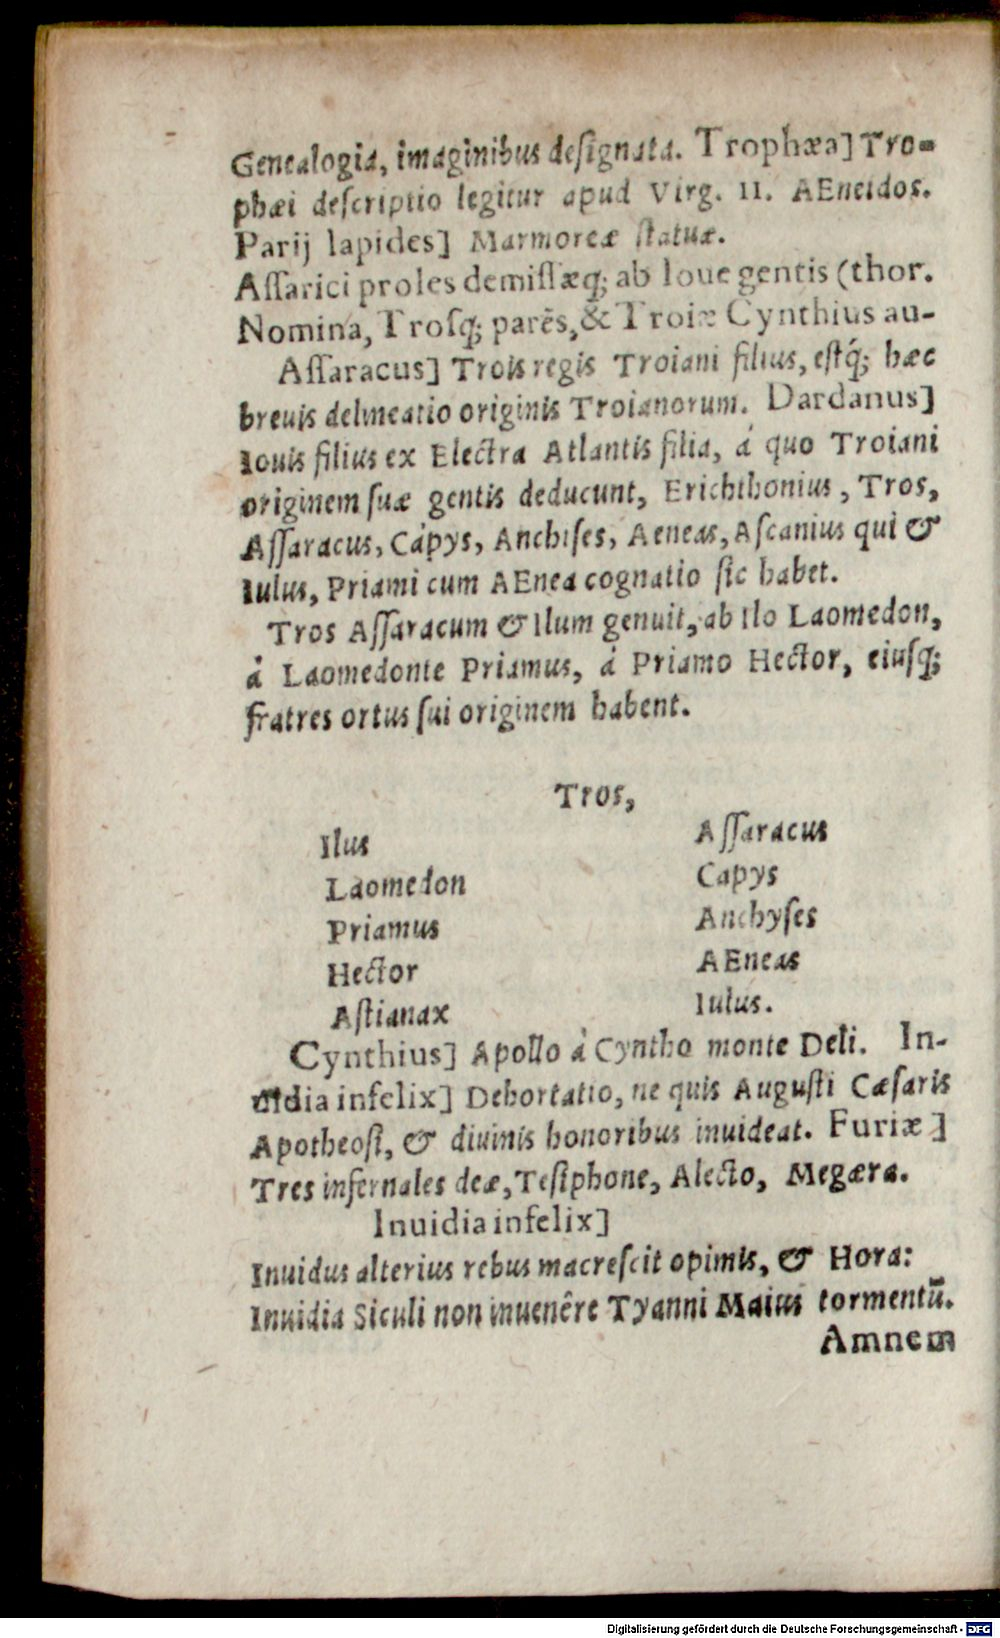 Genealogia, imaginibus deſignata. Trophæa] Tro-
phæi deſcriptio legitur apud Virg. 11. AEneidos.
Parij lapides] Marmoreæ ſtatuæ.
Aſſarici proles demiſſæq; ab Ioue gentis (thor.
Nomina, Troſq; parẽs, & Troiæ Cynthius au-
Aſſaracus] Trois regis Troiani filius, eſtq́; hæc
breuis delineatio originis Troianorum. Dardanus]
Iouis filius ex Electra Atlantis filia, á quo Troiani
originem ſuæ gentis deducunt, Erichthonius, Tros,
Aſſaracus, Cápys, Anchiſes, Aeneas, Aſcanius qui &
Iulus, Priami cum AEnea cognatio ſic habet.
Tros Aſſaracum & Ilum genuit, ab Ilo Laomedon,
à Laomedonte Priamus, á Priamo Hector, eiuſq;
fratres ortus ſui originem habent.
Tros,
Ilus Aſſaracus
Laomedon Capys
Priamus Anchyſes
Hector AEneas
Aſtianax Iulus.
Cynthius] Apollo à Cyntho monte Deli. In-
uidia infelix] Dehortatio, ne quis Auguſti Cæſaris
Apotheoſi, & diuinis honoribus inuideat. Furiæ]
Tres infernales deæ, Teſiphone, Alecto, Megæra.
Inuidia infelix]
Inuidus alterius rebus macreſcit opimis, & Hora:
Inuidia Siculi non inuenêre Tyanni Maius tormentũ.
Amnem
Digitalisierung gefördert durch die Deutsche Forschungsgemeinschaft - DFG